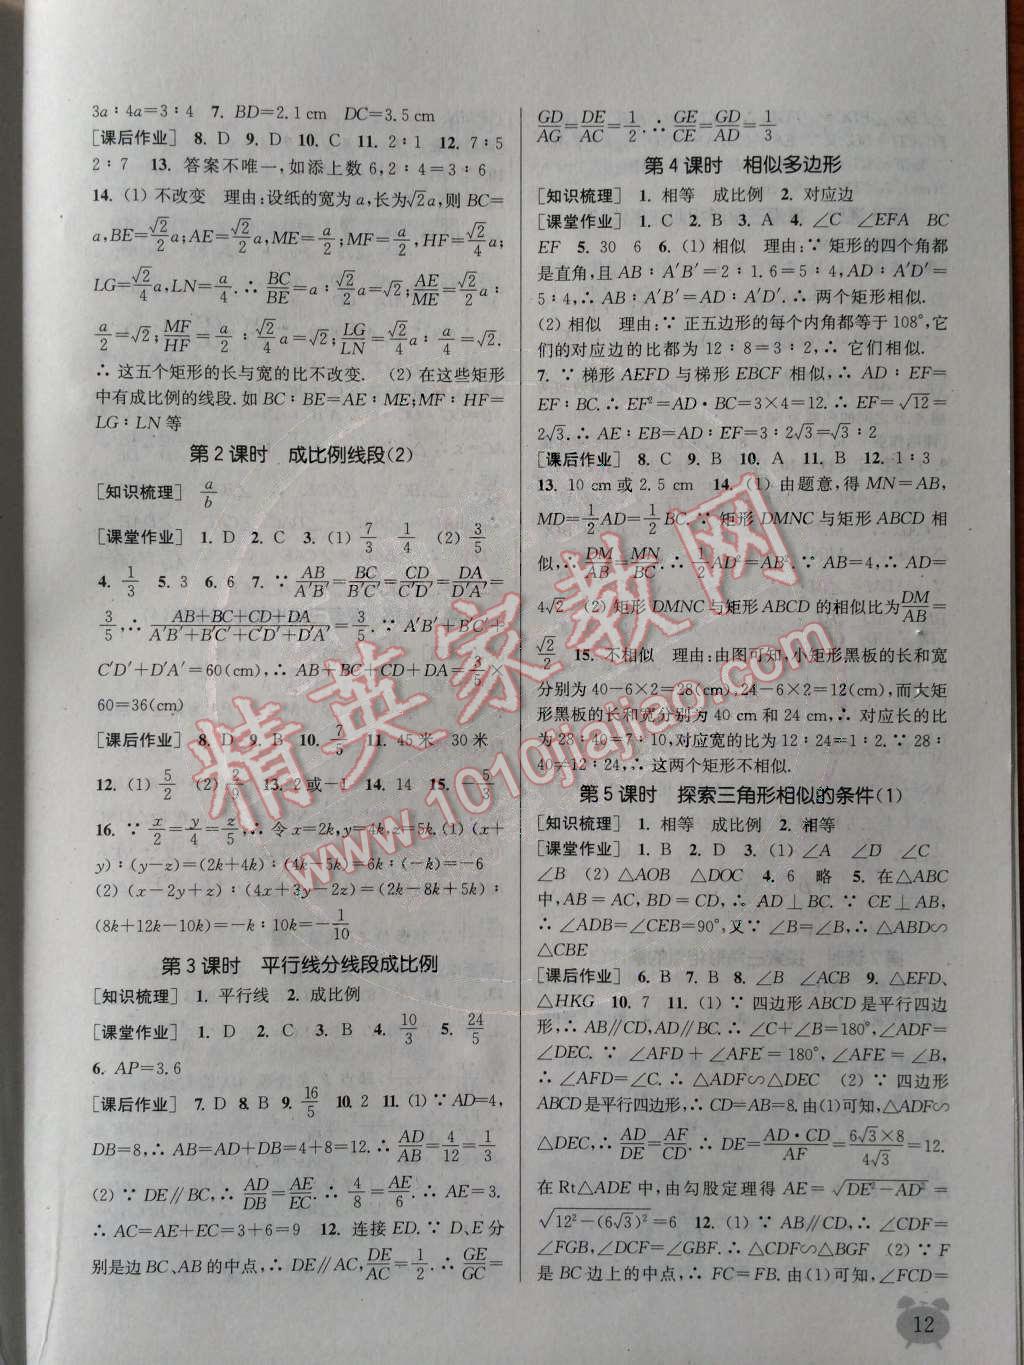 3a∶4a=3∶4　7. BD=2.1 cm　DC=3.5 cm
[课后作业]　8. D　9. D　10. C　11. 2∶1　12. 7∶5
2∶7　13. 答案不唯一,如添上数 6,2∶4=3∶6
14. (1) 不改变　理由:设纸的宽为 a,长为√2a,则 BC=
a,BE=√2/2a;AE=√2/2a,ME=a/2;MF=a/2,HF=√2/4a;
LG=√2/4a,LN=a/4.∴ BC/BE=a∶√2/2a=√2;AE/ME=√2/2a∶
a/2=√2;MF/HF=a/2∶√2/4a=√2;LG/LN=√2/4a∶a/4=√2.
∴ 这五个矩形的长与宽的比不改变.　(2) 在这些矩形
中有成比例的线段.如 BC∶BE=AE∶ME;MF∶HF=
LG∶LN 等
第 2 课时　成比例线段(2)
[知识梳理]　a/b
[课堂作业]　1. D　2. C　3. (1) 7/3　1/4　(2) 3/5
4. 1/3　5. 3　6. 6　7. ∵ AB/A′B′=BC/B′C′=CD/C′D′=DA/D′A′=
3/5,∴ (AB+BC+CD+DA)/(A′B′+B′C′+C′D′+D′A′)=3/5.∵ A′B′+B′C′+
C′D′+D′A′=60(cm),∴ AB+BC+CD+DA=3/5×
60=36(cm)
[课后作业]　8. D　9. B　10. 7/5　11. 45米　30米
12. (1) 5/2　(2) 2/9　13. 2或−1　14. 14　15. −5/3
16. ∵ x/2=y/4=z/5,∴ 令 x=2k,y=4k,z=5k.(1) (x+
y)∶(y−z)=(2k+4k)∶(4k−5k)=6k∶(−k)=−6
(2) (x−2y+z)∶(4x+3y−2z)=(2k−8k+5k)∶
(8k+12k−10k)=−k∶10k=−1/10
第 3 课时　平行线分线段成比例
[知识梳理]　1. 平行线　2. 成比例
[课堂作业]　1. D　2. C　3. B　4. 10/3　5. 24/5
6. AP=3.6
[课后作业]　7. D　8. B　9. 16/5　10. 2　11. (1) ∵ AD=4,
DB=8,∴ AB=AD+DB=4+8=12.∴ AD/AB=4/12=1/3
(2) ∵ DE∥BC,∴ AD/DB=AE/EC.∴ 4/8=AE/6.∴ AE=3.
∴ AC=AE+EC=3+6=9　12. 连接 ED.∵ D、E 分
别是边 BC、AB 的中点,∴ DE∥AC,DE/AC=1/2.∴ GE/GC=
GD/AG=DE/AC=1/2.∴ GE/CE=GD/AD=1/3
第 4 课时　相似多边形
[知识梳理]　1. 相等　成比例　2. 对应边
[课堂作业]　1. C　2. B　3. A　4. ∠C　∠EFA　BC
EF　5. 30　6　6. (1) 相似　理由:∵ 矩形的四个角都
是直角,且 AB∶A′B′=2∶1.6=5∶4,AD∶A′D′=
5∶4,∴ AB∶A′B′=AD∶A′D′.∴ 两个矩形相似.
(2) 相似　理由:∵ 正五边形的每个内角都等于 108°,它
们的对应边的比都为 12∶8=3∶2,∴ 它们相似.
7. ∵ 梯形 AEFD 与梯形 EBCF 相似,∴ AD∶EF=
EF∶BC.∴ EF²=AD·BC=3×4=12.∴ EF=√12=
2√3.∴ AE∶EB=AD∶EF=3∶2√3=√3∶2
[课后作业]　8. C　9. B　10. A　11. B　12. 1∶3
13. 10 cm 或 2.5 cm　14. (1) 由题意,得 MN=AB,
MD=1/2AD=1/2BC.∵ 矩形 DMNC 与矩形 ABCD 相
似,∴ DM/AB=MN/BC.∴ 1/2AD²=AB².∵ AB=4,∴ AD=
4√2　(2) 矩形 DMNC 与矩形 ABCD 的相似比为 DM/AB=
√2/2　15. 不相似　理由:由图可知,小矩形黑板的长和宽
分别为 40−6×2=28(cm),24−6×2=12(cm),而大矩
形黑板的长和宽分别为 40 cm 和 24 cm,∴ 对应长的比
为 28∶40=7∶10,对应宽的比为 12∶24=1∶2.∵ 28∶
40≠12∶24,∴ 这两个矩形不相似.
第 5 课时　探索三角形相似的条件(1)
[知识梳理]　1. 相等　成比例　2. 相等
[课堂作业]　1. B　2. D　3. (1) ∠A　∠D　∠C
∠B　(2) △AOB　△DOC　4. 6　略　5. 在△ABC
中,AB=AC,BD=CD,∴ AD⊥BC.∵ CE⊥AB,
∴ ∠ADB=∠CEB=90°,又∵ ∠B=∠B,∴ △ABD∽
△CBE
[课后作业]　6. B　7. B　8. ∠B　∠ACB　9. △EFD,
△HKG　10. 7　11. (1) ∵ 四边形 ABCD 是平行四边
形,∴ AB∥CD,AD∥BC.∴ ∠C+∠B=180°,∠ADF=
∠DEC.∵ ∠AFD+∠AFE=180°,∠AFE=∠B,
∴ ∠AFD=∠C.∴ △ADF∽△DEC　(2) ∵ 四边形
ABCD 是平行四边形,∴ CD=AB=8.由(1)可知,△ADF∽
△DEC,∴ AD/DE=AF/CD.∴ DE=AD·CD/AF=6√3×8/4√3=12.
在 Rt△ADE 中,由勾股定理得 AE=√(DE²−AD²)=
√(12²−(6√3)²)=6　12. (1) ∵ AB∥CD,∴ ∠CDF=
∠FGB,∠DCF=∠GBF.∴ △CDF∽△BGF　(2) ∵ F
是 BC 边上的中点,∴ FC=FB.由(1)可知,∠FCD=
12
精英家教网
www.1010jiajiao.com